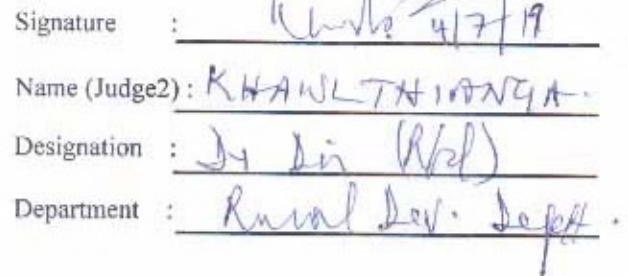 Signature : 4/7/19
Name (Judge2) : KHAWLTHIANGA.
Designation : Dy Dir (R/d)
Department : Rural Dev. Deptt.